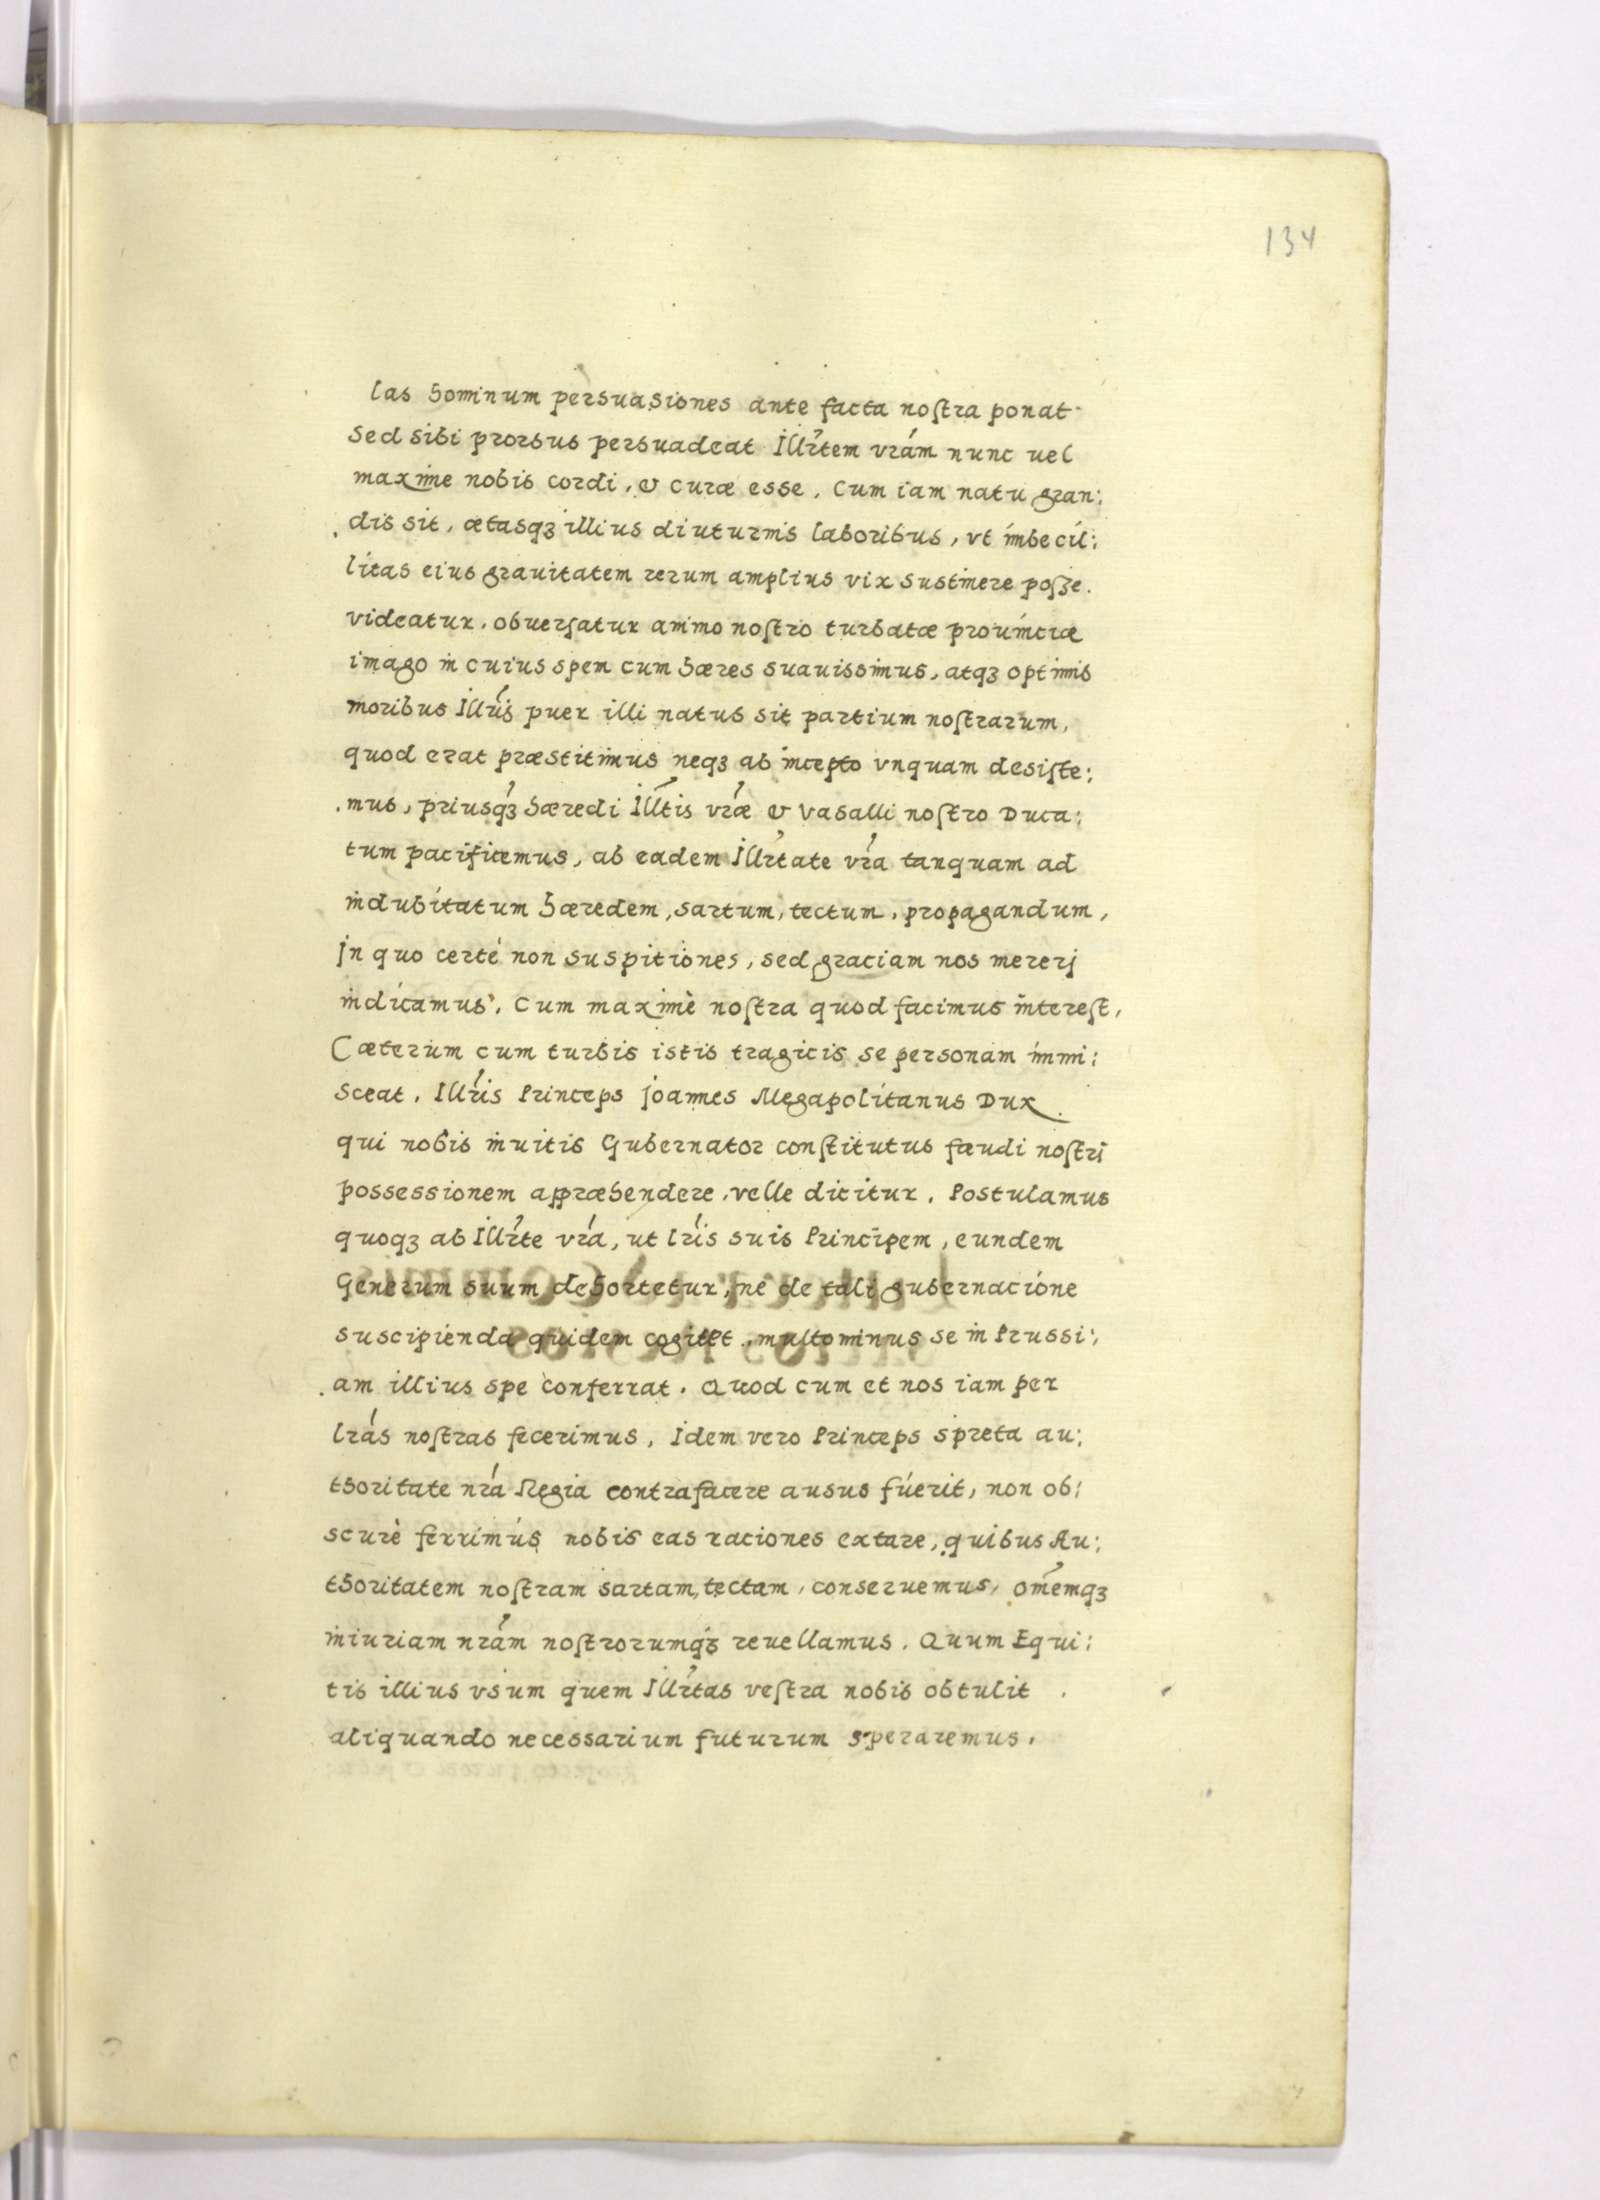 134
las hominum persuasiones ante facta noſtra ponat
Sed sibi prorsus persuadeat Illrtem vrám nunc uel
maxime nobis cordi, & curæ esse. Cum iam natu gran:
dis sit, ætasqꝫ illius diuturnis laboribus, vt imbecil:
litas eius grauitatem rerum amplius vix sustinere poſſe.
videatur. obuerſatur animo noſtro turbatæ prouinciæ
imago in cuius spem cum hæres suauissimus, atqꝫ optimis
moribus Illris puer illi natus sit partium noſtrarum,
quod erat præstitimus neqꝫ ab incepto vnquam desiſte:
mus, priusqꝫ hæredi Illtis vræ & Vasalli noſtro Duca:
tum pacificemus, ab eadem Illrtate vra tanquam ad
indubitatum hæredem, sartum, tectum, propagandum,
jn quo certè non suspitiones, sed graciam nos mererj
indicamus. Cum maximè noſtra quod facimus intereſt,
Cæterum cum turbis istis tragicis se personam immi:
sceat. Illris Princeps joannes Megapolitanus Dux
qui nobis inuitis Gubernator conſtitutus fæudi noſtri
possessionem appræhendere velle dicitur. Postulamus
quoqꝫ ab Illrte vrá, ut lris suis Principem, eundem
Generum suum dehortetur, ne de tali gubernacióne
suscipienda quidem cogitet, multo minus se in Prussi:
am illius spe conferrat. Quod cum et nos iam per
lrás noſtras fecerimus, Idem vero Princeps spreta au:
thoritate nrá Regia contrafacere ausus fúerit, non ob:
scurè ferrimús nobis eas raciones extare, quibus Au:
thoritatem noſtram sartam, tectam, conseruemus, omemqꝫ
iniuriam nrám noſtrorumqꝫ reuellamus. Quum Equi:
tis illius vsum quem Illrtas veſtra nobis obtulit
aliquando necessarium futurum speraremus.